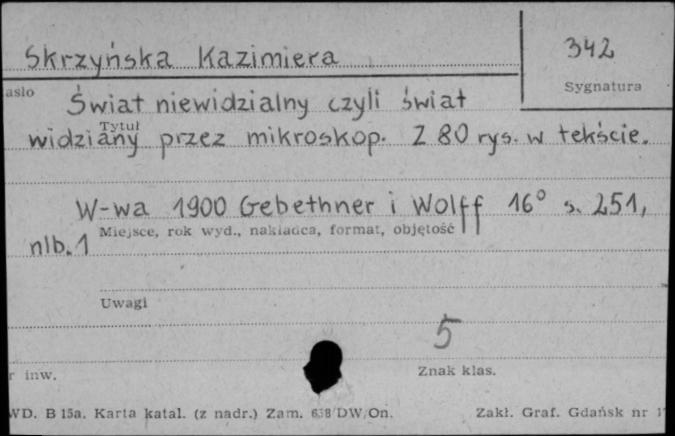 Skrzyńska Kazimiera
342
asło
Sygnatura
Świat niewidzialny czyli świat
Tytuł
widziany przez mikroskop. Z 80 rys. w tekście.
W-wa 1900 Gebethner i Wolff 16° s. 251,
Miejsce, rok wyd., nakładca, format, objętość
nlb. 1
Uwagi
5
r inw.
Znak klas.
WD. B 15a. Karta katal. (z nadr.) Zam. 638/DW/On.
Zakł. Graf. Gdańsk nr 1